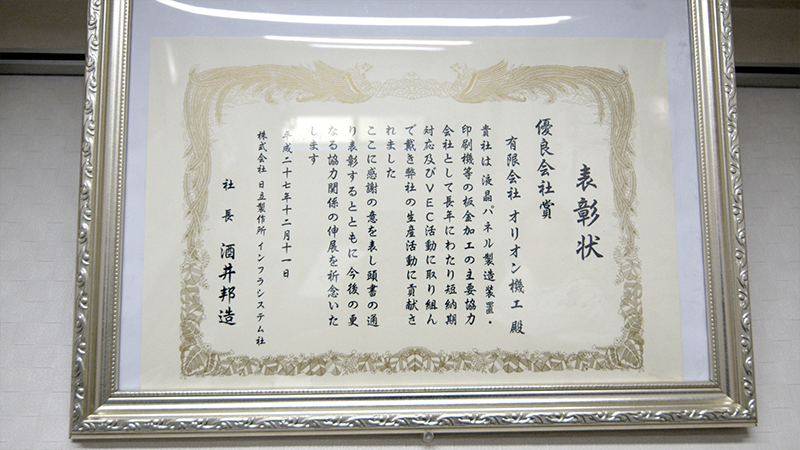 表彰状
優良会社賞
有限会社 オリオン機工 殿
貴社は液晶パネル製造装置・
印刷機等の板金加工の主要協力
会社として長年にわたり短納期
対応及びVEC活動に取り組ん
で戴き弊社の生産活動に貢献さ
れました
ここに感謝の意を表し頭書の通
り表彰するとともに今後の更
なる協力関係の伸展を祈念いた
します
平成二十七年十二月十一日
株式会社 日立製作所 インフラシステム社
社長 酒井邦造